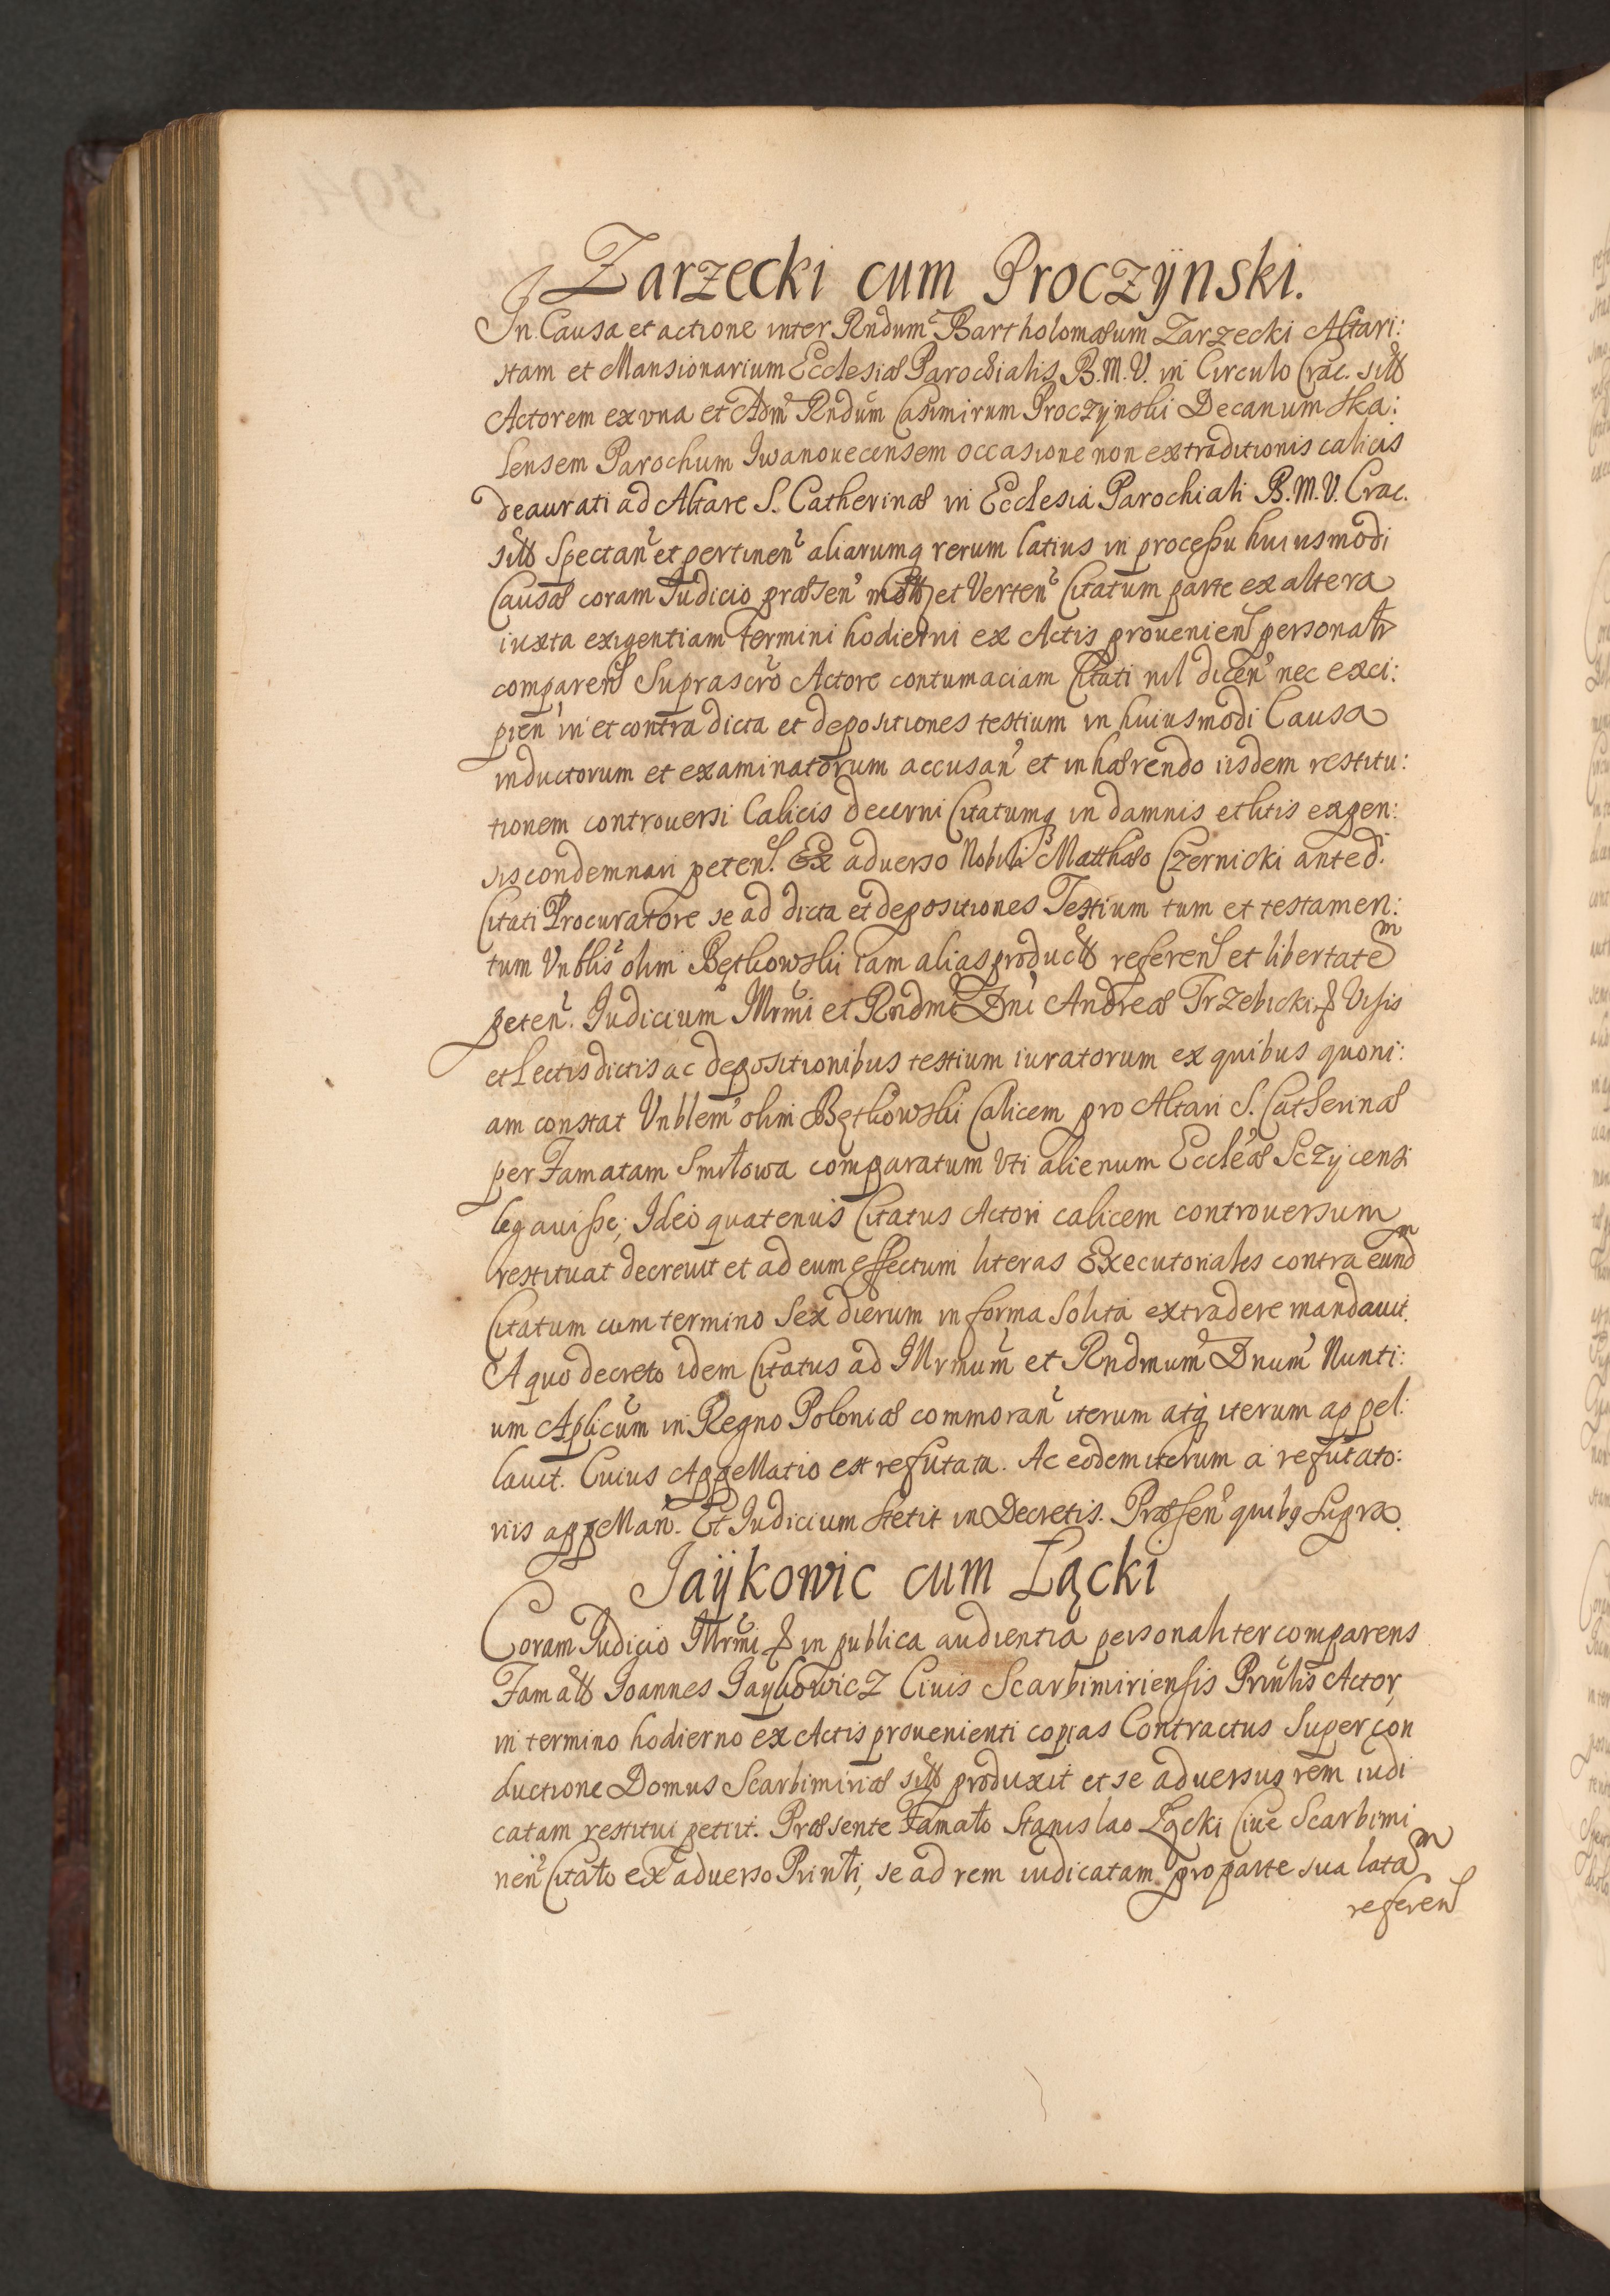 Zarzecki cum Proczÿnski.
In Causa et actione inter Rndum Bartholomæum Zarzecki Altari:
stam et Mansionarium Ecclesiæ Parochialis B.M.V. in Circulo Crac. sitæ
Actorem ex vna et Adm Rndum Casimirum Proczÿnski Decanum Ska:
lensem Parochum Iwanouecensem occasione non extraditionis calicis
deaurati ad Altare S. Catherinæ in Ecclesia Parochiali B.M.V. Crac.
sitæ Spectan et pertinen aliarumq rerum latius in processu huiusmodi
Causæ coram Iudicio præsen mot et Verten Citatum parte ex altera
iuxta exigentiam Termini hodierni ex Actis prouenien personalr
comparen Suprascro Actore contumaciam Citati nil dicen nec exci:
pien in et contra dicta et depositiones testium in huiusmodi Causa
inductorum et examinatorum accusan et inhærendo iisdem restitu:
tionem controuersi Calicis decerni Citatumq in damnis et litis expen:
sis condemnari peten. Ex aduerso Nobili Matthæo Czernicki anted.
Citati Procuratore se ad dicta et depositiones Testium tum et testamen:
tum Vnblis olim Bętkowski iam alias product referen et libertatem
peten. Iudicium Illrmi et Rndmi Dni Andreæ Trzebicki & Visis
et Lectis dictis ac depositionibus testium iuratorum ex quibus quoni:
am constat Vnblem olim Bętkowski Calicem pro Altari S. Catherinæ
per Famatam Smiłowa comparatum Vti alienum Eccleæ Sczÿcensi
legauisse; Ideo quatenus Citatus Actori calicem controuersum
restituat decreuit et ad eum effectum literas Executoriales contra eundm
Citatum cum termino Sex dierum in forma Solita extradere mandauit.
A quo decreto idem Citatus ad Illrmum et Rndmum Dnum Nunti:
um Aplicum in Regno Poloniæ commoran iterum atq iterum appel:
lauit. Cuius Appellatio est refutata. Ac eodem iterum a refutato:
riis appellan. Et Iudicium stetit in Decretis. Præsen quibq Supra.
Jaÿkowic cum Łącki
Coram Iudicio Illrmi & in publica audientia personaliter comparens
Famatt Ioannes Jaykowicz Ciuis Scarbimiriensis Prinlis Actor,
in termino hodierno ex Actis prouenienti copias Contractus Super con
ductione Domus Scarbimiriæ sitæ produxit et se aduersus rem iudi
catam restitui petiit. Præsente Famato Stanislao Łącki Ciue Scarbimi
rien Citato ex aduerso Prinli, se ad rem iudicatam pro parte sua latam
referen